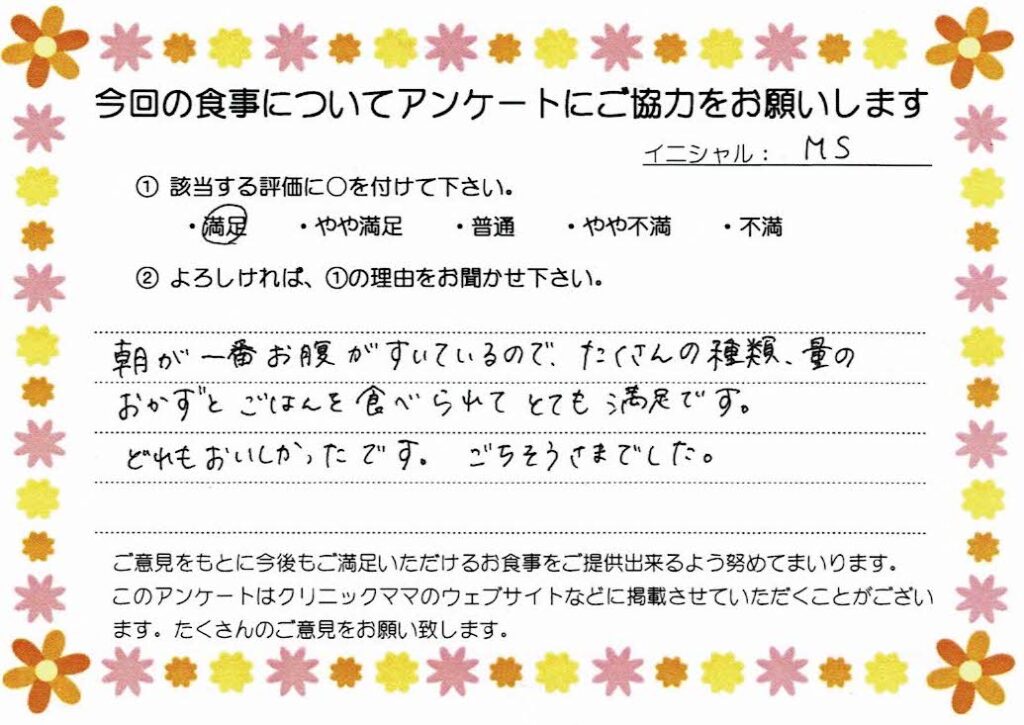 今回の食事についてアンケートにご協力をお願いします
イニシャル： MS
① 該当する評価に○を付けて下さい。
・満足 ・やや満足 ・普通 ・やや不満 ・不満
② よろしければ、①の理由をお聞かせ下さい。
朝が一番お腹がすいているので、たくさんの種類、量の
おかずとごはんを食べられてとても満足です。
どれもおいしかったです。 ごちそうさまでした。
ご意見をもとに今後もご満足いただけるお食事をご提供出来るよう努めてまいります。
このアンケートはクリニックママのウェブサイトなどに掲載させていただくことがござい
ます。たくさんのご意見をお願い致します。